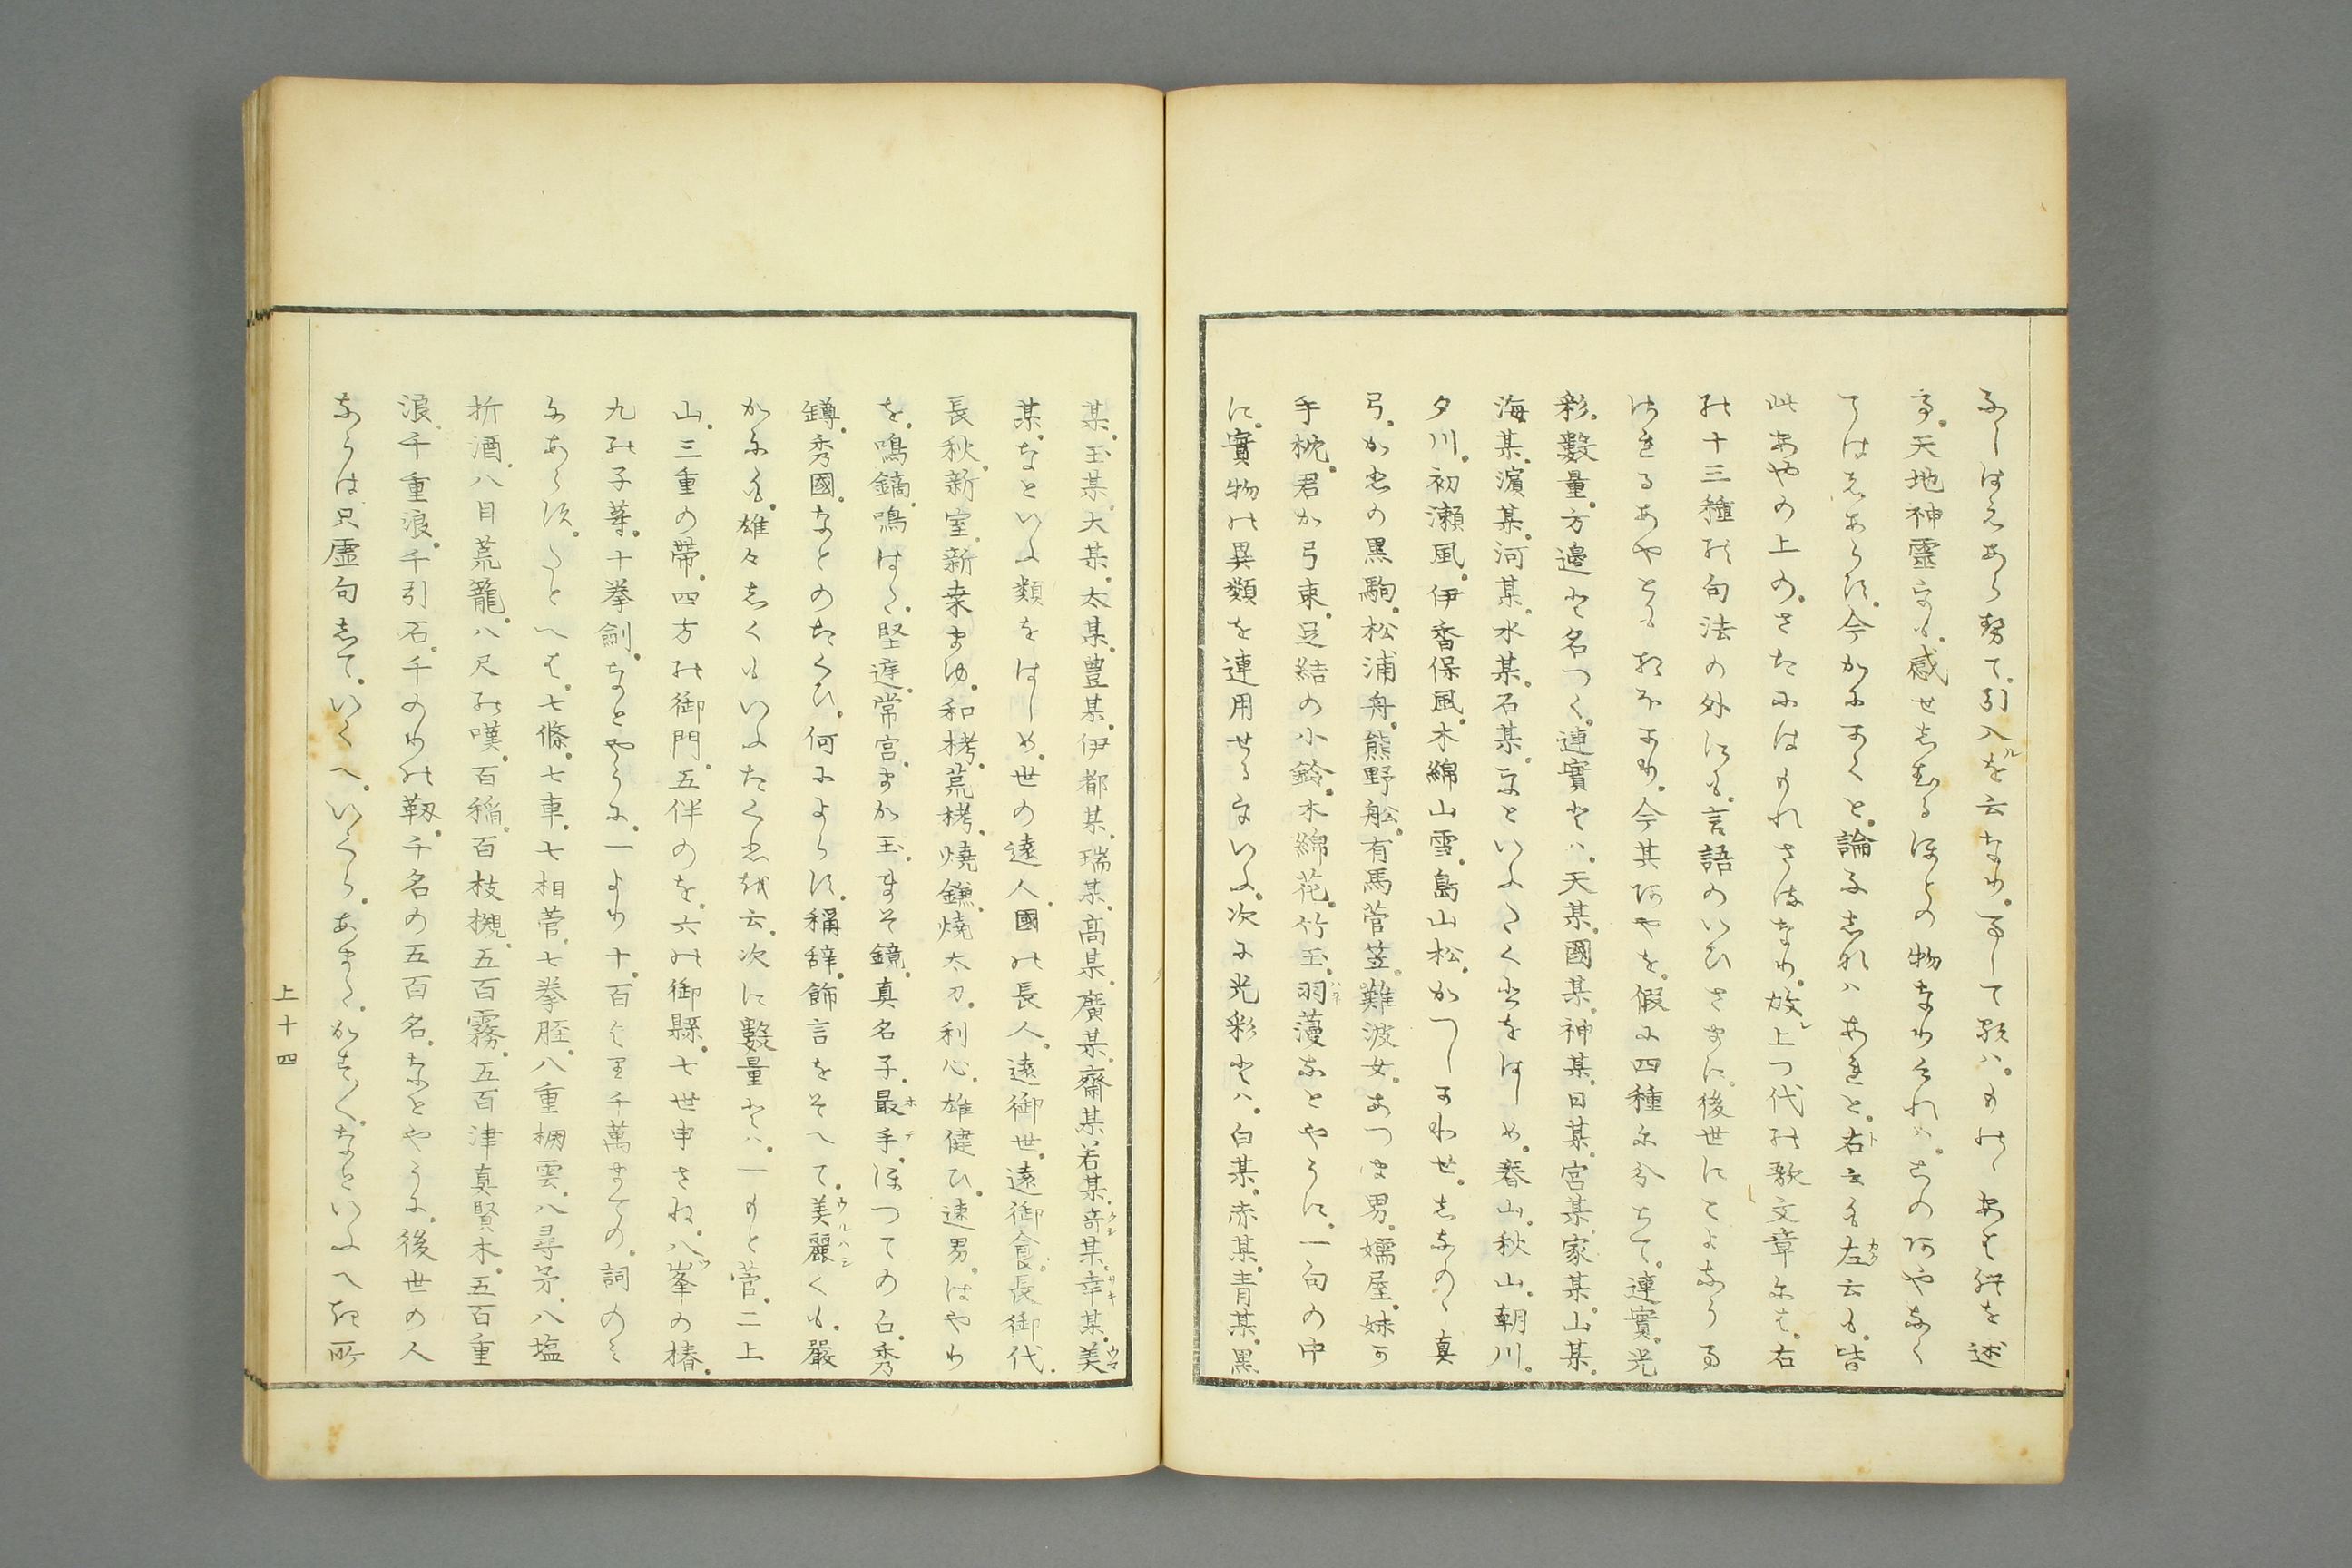 ふしはえあらせて。引入ルを云なり。かくして歌ハ。ものゝあはれを述
る。天地神靈をも。感せしむるほとの物なりけれハ。このあやなく
てはえあらす。今かにかくと。論ふしれハあれと。右ト云も左カク云も。皆
此あやの上の。さたにはかれさはなり。故レ上つ代の歌文章には。右
の十三種の句法の外にも。言語のいひさまに。後世にことなる
はえるあやともおほかり。今其あやを。假に四種に分ちて。連實。光
彩。數量。方邊と名つく。連實とハ。天某。國某。神某。日某。宮某。家某。山某。
海某。濱某。河某。水某。石某。などいふたくひをはしめ。春山。秋山。朝川。
夕川。初瀬風。伊香保風。木綿山雪。島山松。かつしかわせ。しなのゝ真
弓。かひの黒駒。松浦舟。熊野舩。有馬菅笠。難波女。あつま男。嬬屋。妹か
手枕。君か弓束。足結の小鈴。木綿花。竹玉。羽ハネ蘰なとやうに。一句の中
に。實物の異類を連用せるをいふ。次に光彩とハ。白某。赤某。青某。黒
某。玉某。大某。太某。豊某。伊都某。瑞某。高某。廣某。齋某。若某。奇クシ某。幸サキ某。美ウマ
某。なといふ類をはしめ。世の遠人。國の長人。遠御世。遠御食。長御代。
長秋。新室。新桒まゆ。和栲。荒栲。燒鎌。燒太刀。利心。雄健ひ。速男。はやり
を。鳴鏑。鳴はゝ。堅庭。常宮。まか玉。まそ鏡。真名子。最ホ手テ。ほつての占。秀
罇。秀國。なとのたくひ。何によらす。稱辞。飾言をそへて。美ウルハシ麗くも。嚴
かにも。雄々しくもいふたくひを云。次に數量とハ。一もと菅。二上
山。三重の帶。四方の御門。五伴のを。六の御縣。七世申さね。八ツ峯の椿。
九の子等。十拳劍。なとやうに。一より十。百と至千萬まての。詞のミ
にあらす。たとへは。七條。七車。七相菅。七拳脛。八重棚雲。八尋矛。八塩
折酒。八目荒籠。八尺の嘆。百稲。百枝槻。五百霧。五百津真賢木。五百重
浪。千重浪。千引石。千のりの靱。千名の五百名。なとやうに。後世の人
ならは只虚句して。いくへ。いくら。あまた。かす〳〵。なといふへき所
上十四